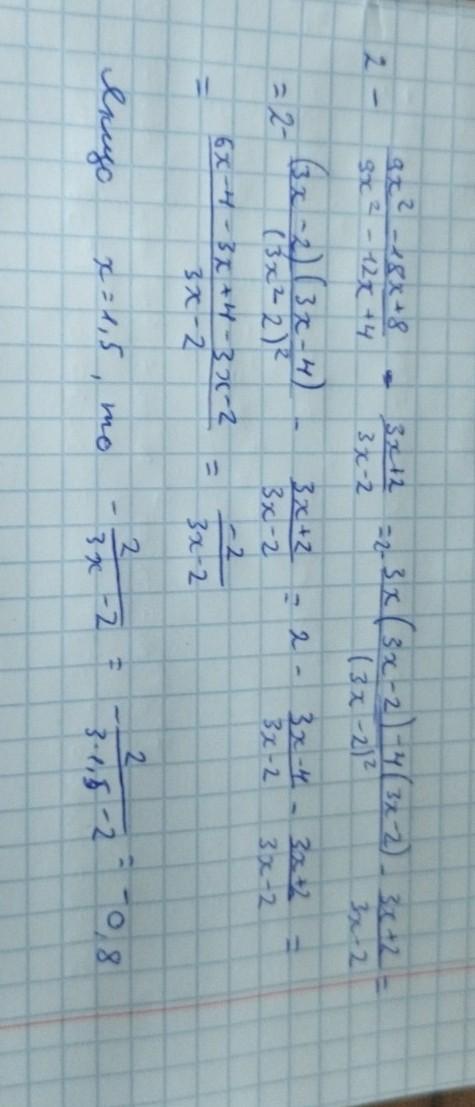 2 - (9x² - 18x + 8)/(9x² - 12x + 4) - (3x+2)/(3x-2) = 2 - (3x(3x-2) - 4(3x-2))/(3x-2)² - (3x+2)/(3x-2) =
= 2 - ((3x-2)(3x-4))/(3x²-2)² - (3x+2)/(3x-2) = 2 - (3x-4)/(3x-2) - (3x+2)/(3x-2) =
= (6x-4-3x+4-3x-2)/(3x-2) = (-2)/(3x-2)
Якщо x=1,5, то - 2/(3x-2) = - 2/(3·1,5-2) = -0,8